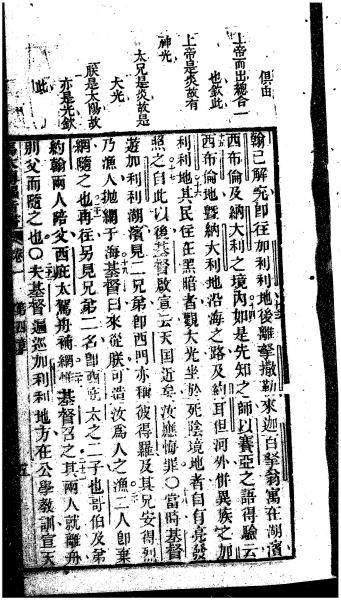 俱由
上帝而出總合一
也欽此
上帝是炎故有
神光
太兄是炎故是
大光
朕是太陽故
亦是光欽
此
翰已解究即往加利利地後離拏撒勒來迦百拏翁寓在湖濱
西布倫及納大利之境內如是先知之師以賽亞之語得驗云
西布倫地暨納大利地沿海之路及約耳但河外併異族之加
利利地其民住在黑暗者觀大光坐於死陰境地者自有亮發
照之自此以後基督啟宣云天国近矣汝應悔罪○當時基督
遊加利利湖濱見二兄弟即西門亦稱彼得羅及其兄安得烈
乃漁人拋網于海基督曰來從朕可造汝為人之漁二人即棄
網隨之也再往另見兄弟二名即西庇太之二子也哥伯及弟
約翰兩人陪父西庇太駕舟補網基督召之其兩人就離舟
別父而隨之也○夫基督遍巡加利利地方在公學教訓宣天
卷一 第四章